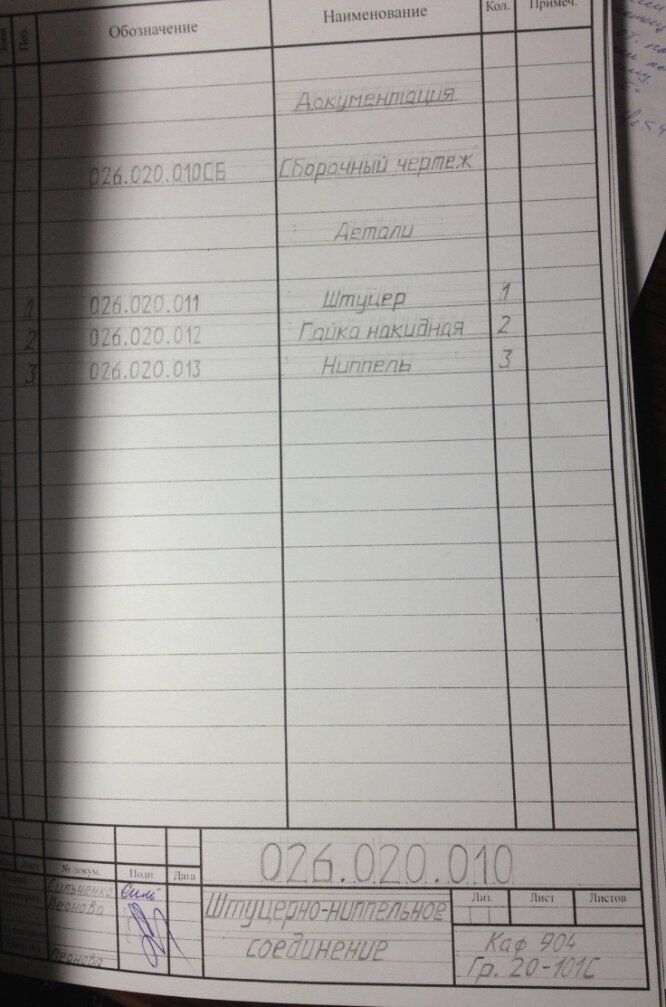 Зона Поз. Обозначение Наименование Кол. Примеч.
Документация
026.020.010СБ Сборочный чертеж
Детали
1 026.020.011 Штуцер 1
2 026.020.012 Гайка накидная 2
3 026.020.013 Ниппель 3
026.020.010
Изм. Лист № докум. Подп. Дата
Сильченко Силь
Леонова
Леонова
Штуцерно-ниппельное
соединение
Лит. Лист Листов
Каф 904
Гр. 20-101С